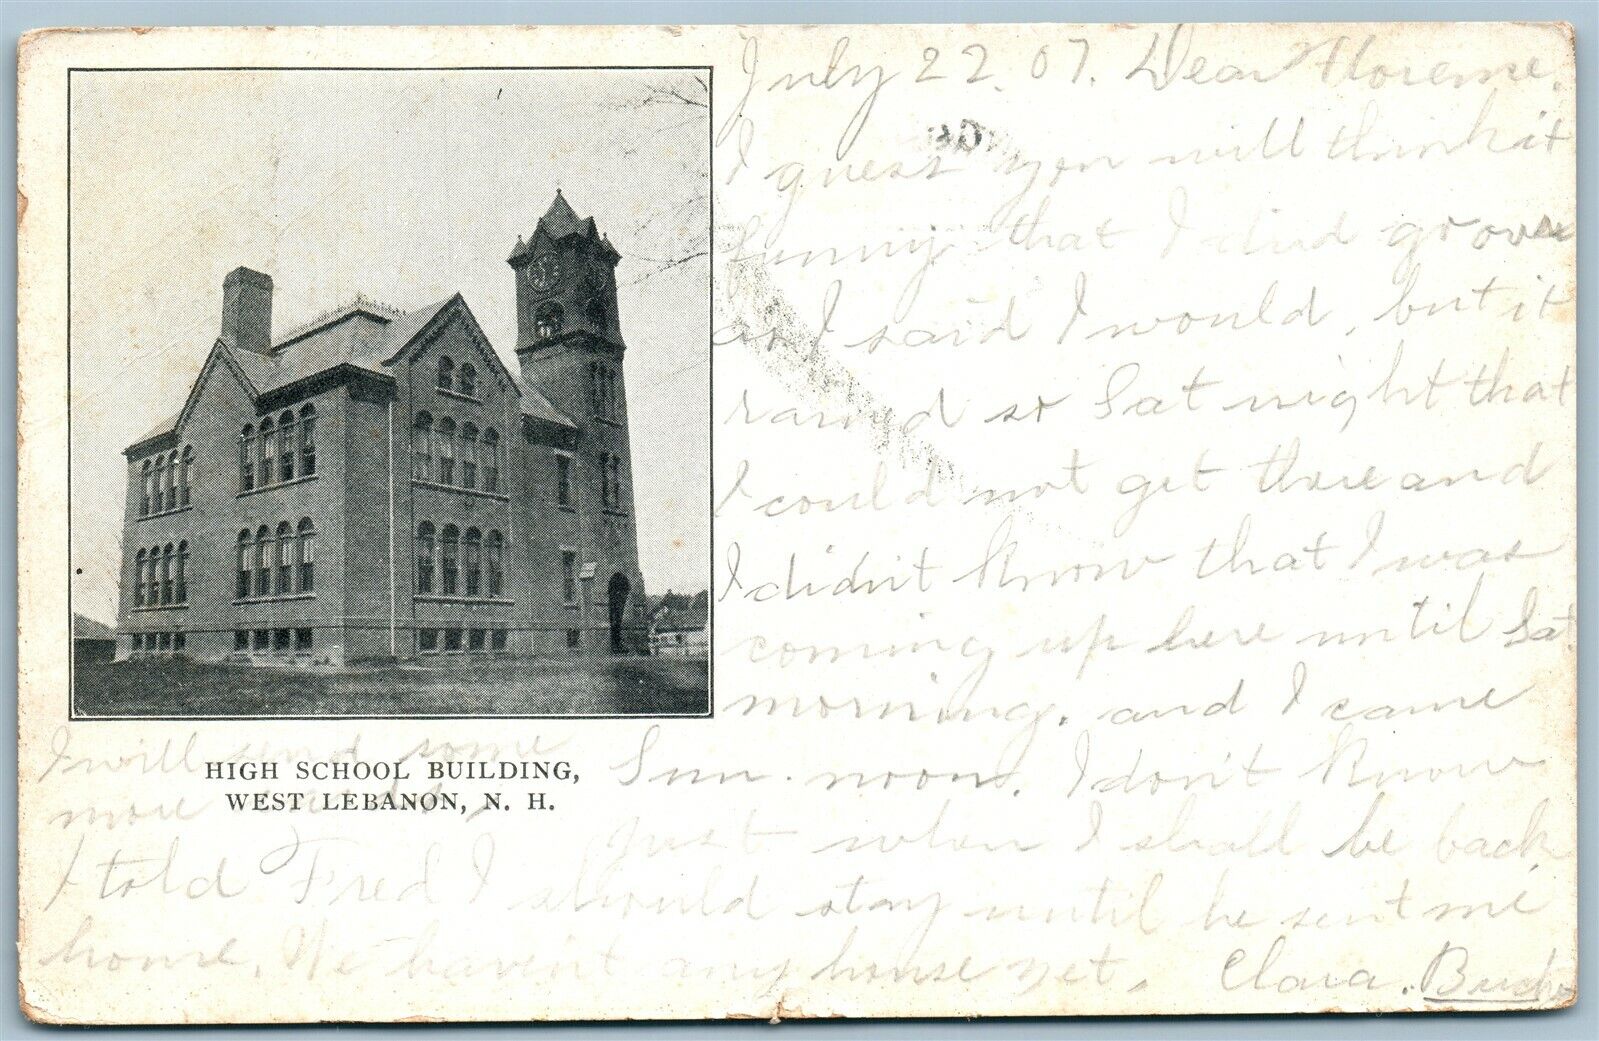 July 22. 07. Dear Florence.
I guess you will think it
funny that I did go over
as I said I would, but it
rained so Sat night that
I could not get there and
I didn't know that I was
coming up here until Sat.
morning, and I came
Sun. noon. I don't know
just when I shall be back
I told Fred I should stay until he sent me
home. We haven't any house yet. Clara.
I will send some
more
HIGH SCHOOL BUILDING,
WEST LEBANON, N. H.